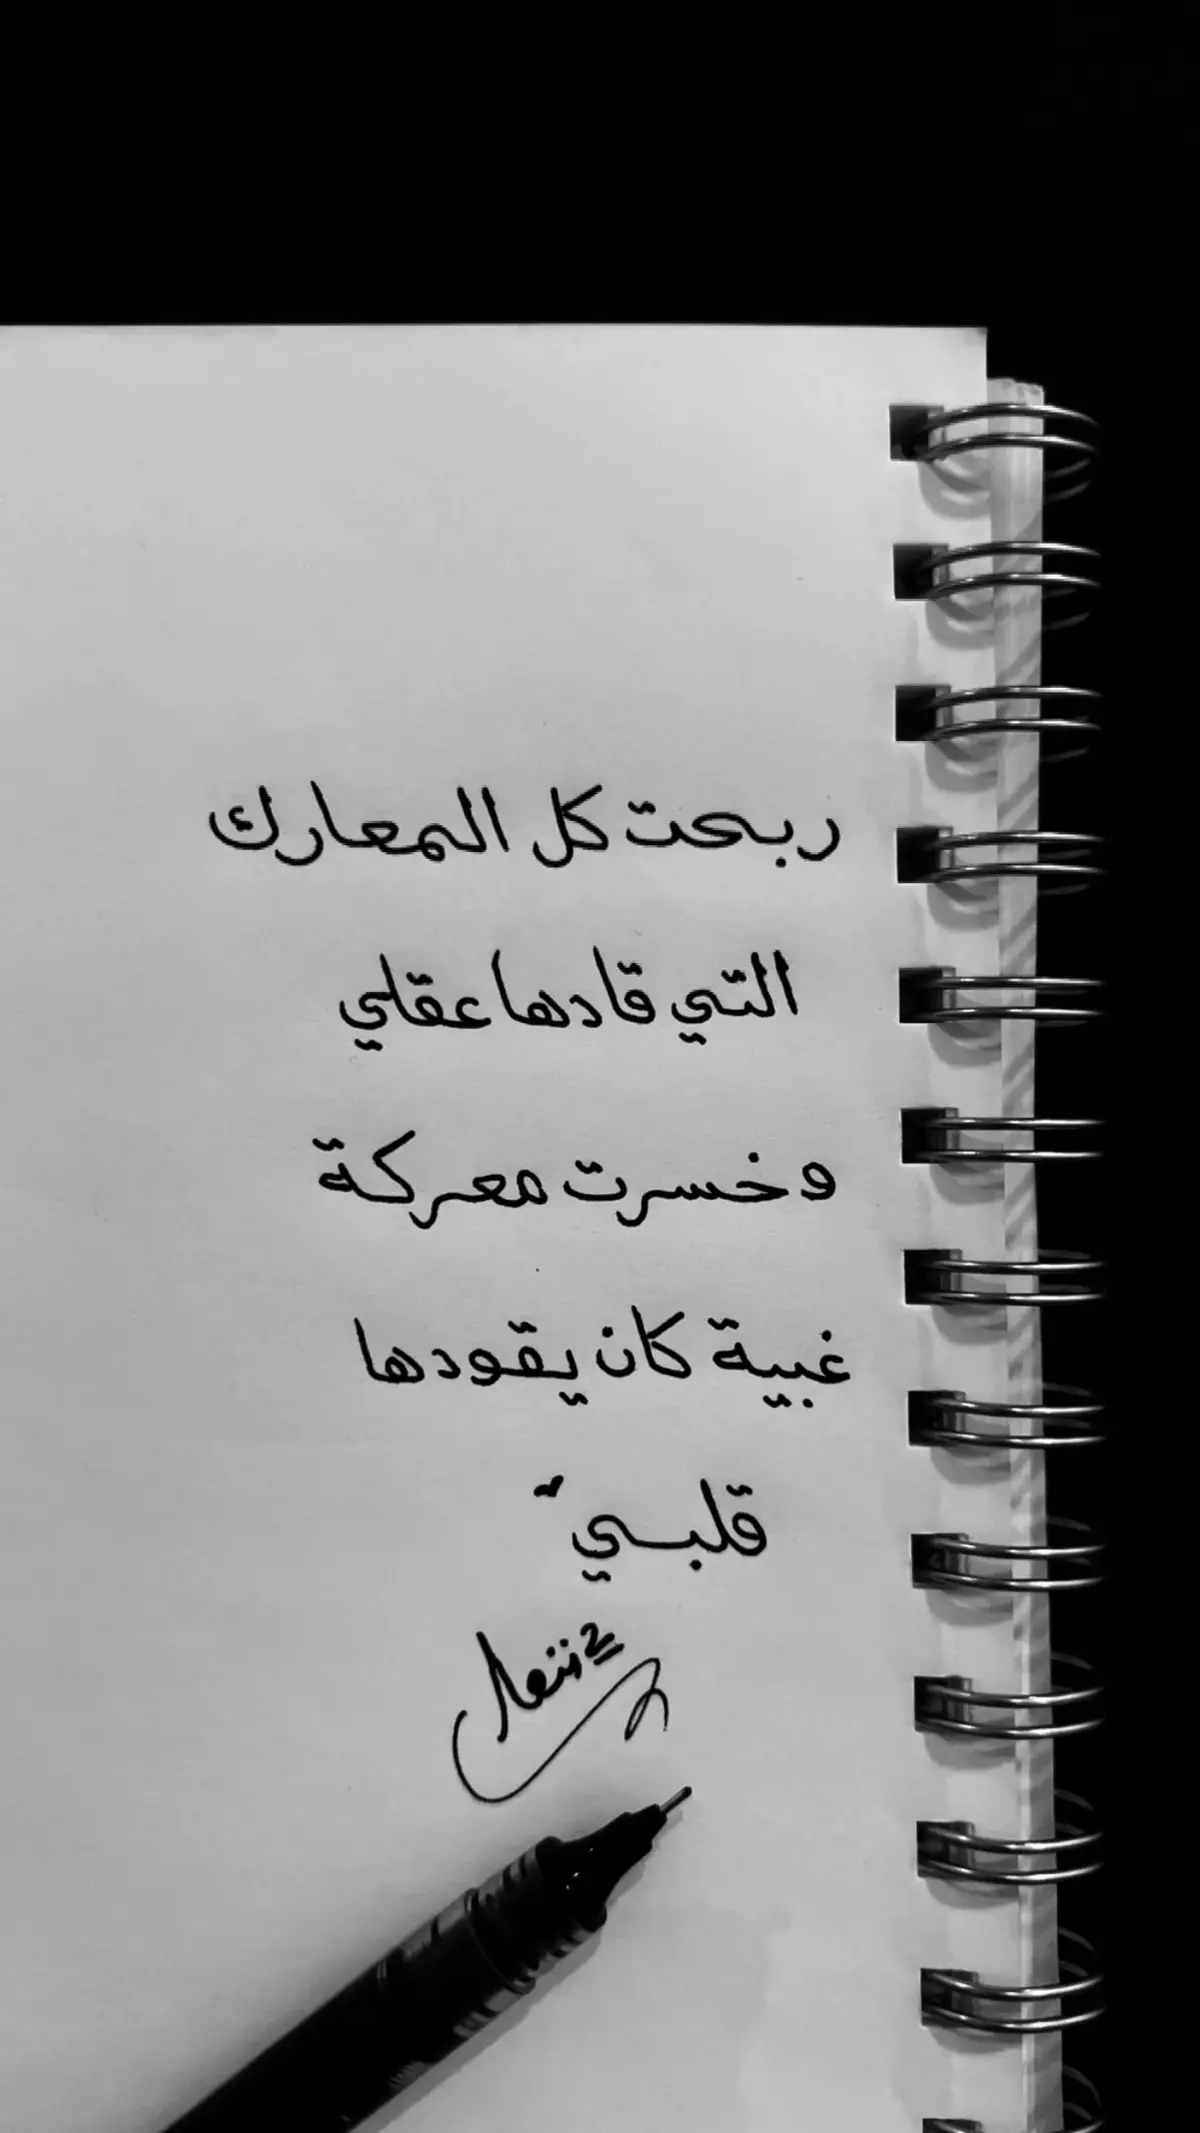 ربحت كل المعارك
التي قادها عقلي
وخسرت معركة
غبية كان يقودها
قلبي